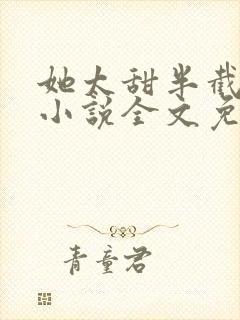 她太甜半截
小説全文免
青童君